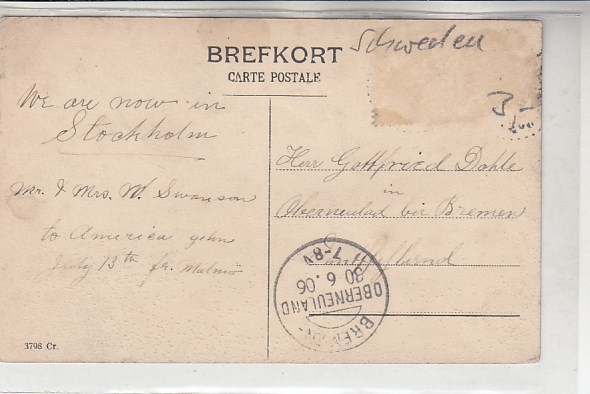 Schweden
BREFKORT
CARTE POSTALE
3,-
We are now in
Stockholm
Mr. & Mrs. W. Swanson
to America gehn
July 13th fr. Malmö
Herr Gottfried Dahle
in
Oberneuland bei Bremen
BREMEN-
OBERNEULAND
30.6.06
7-8V
3798 Cr.